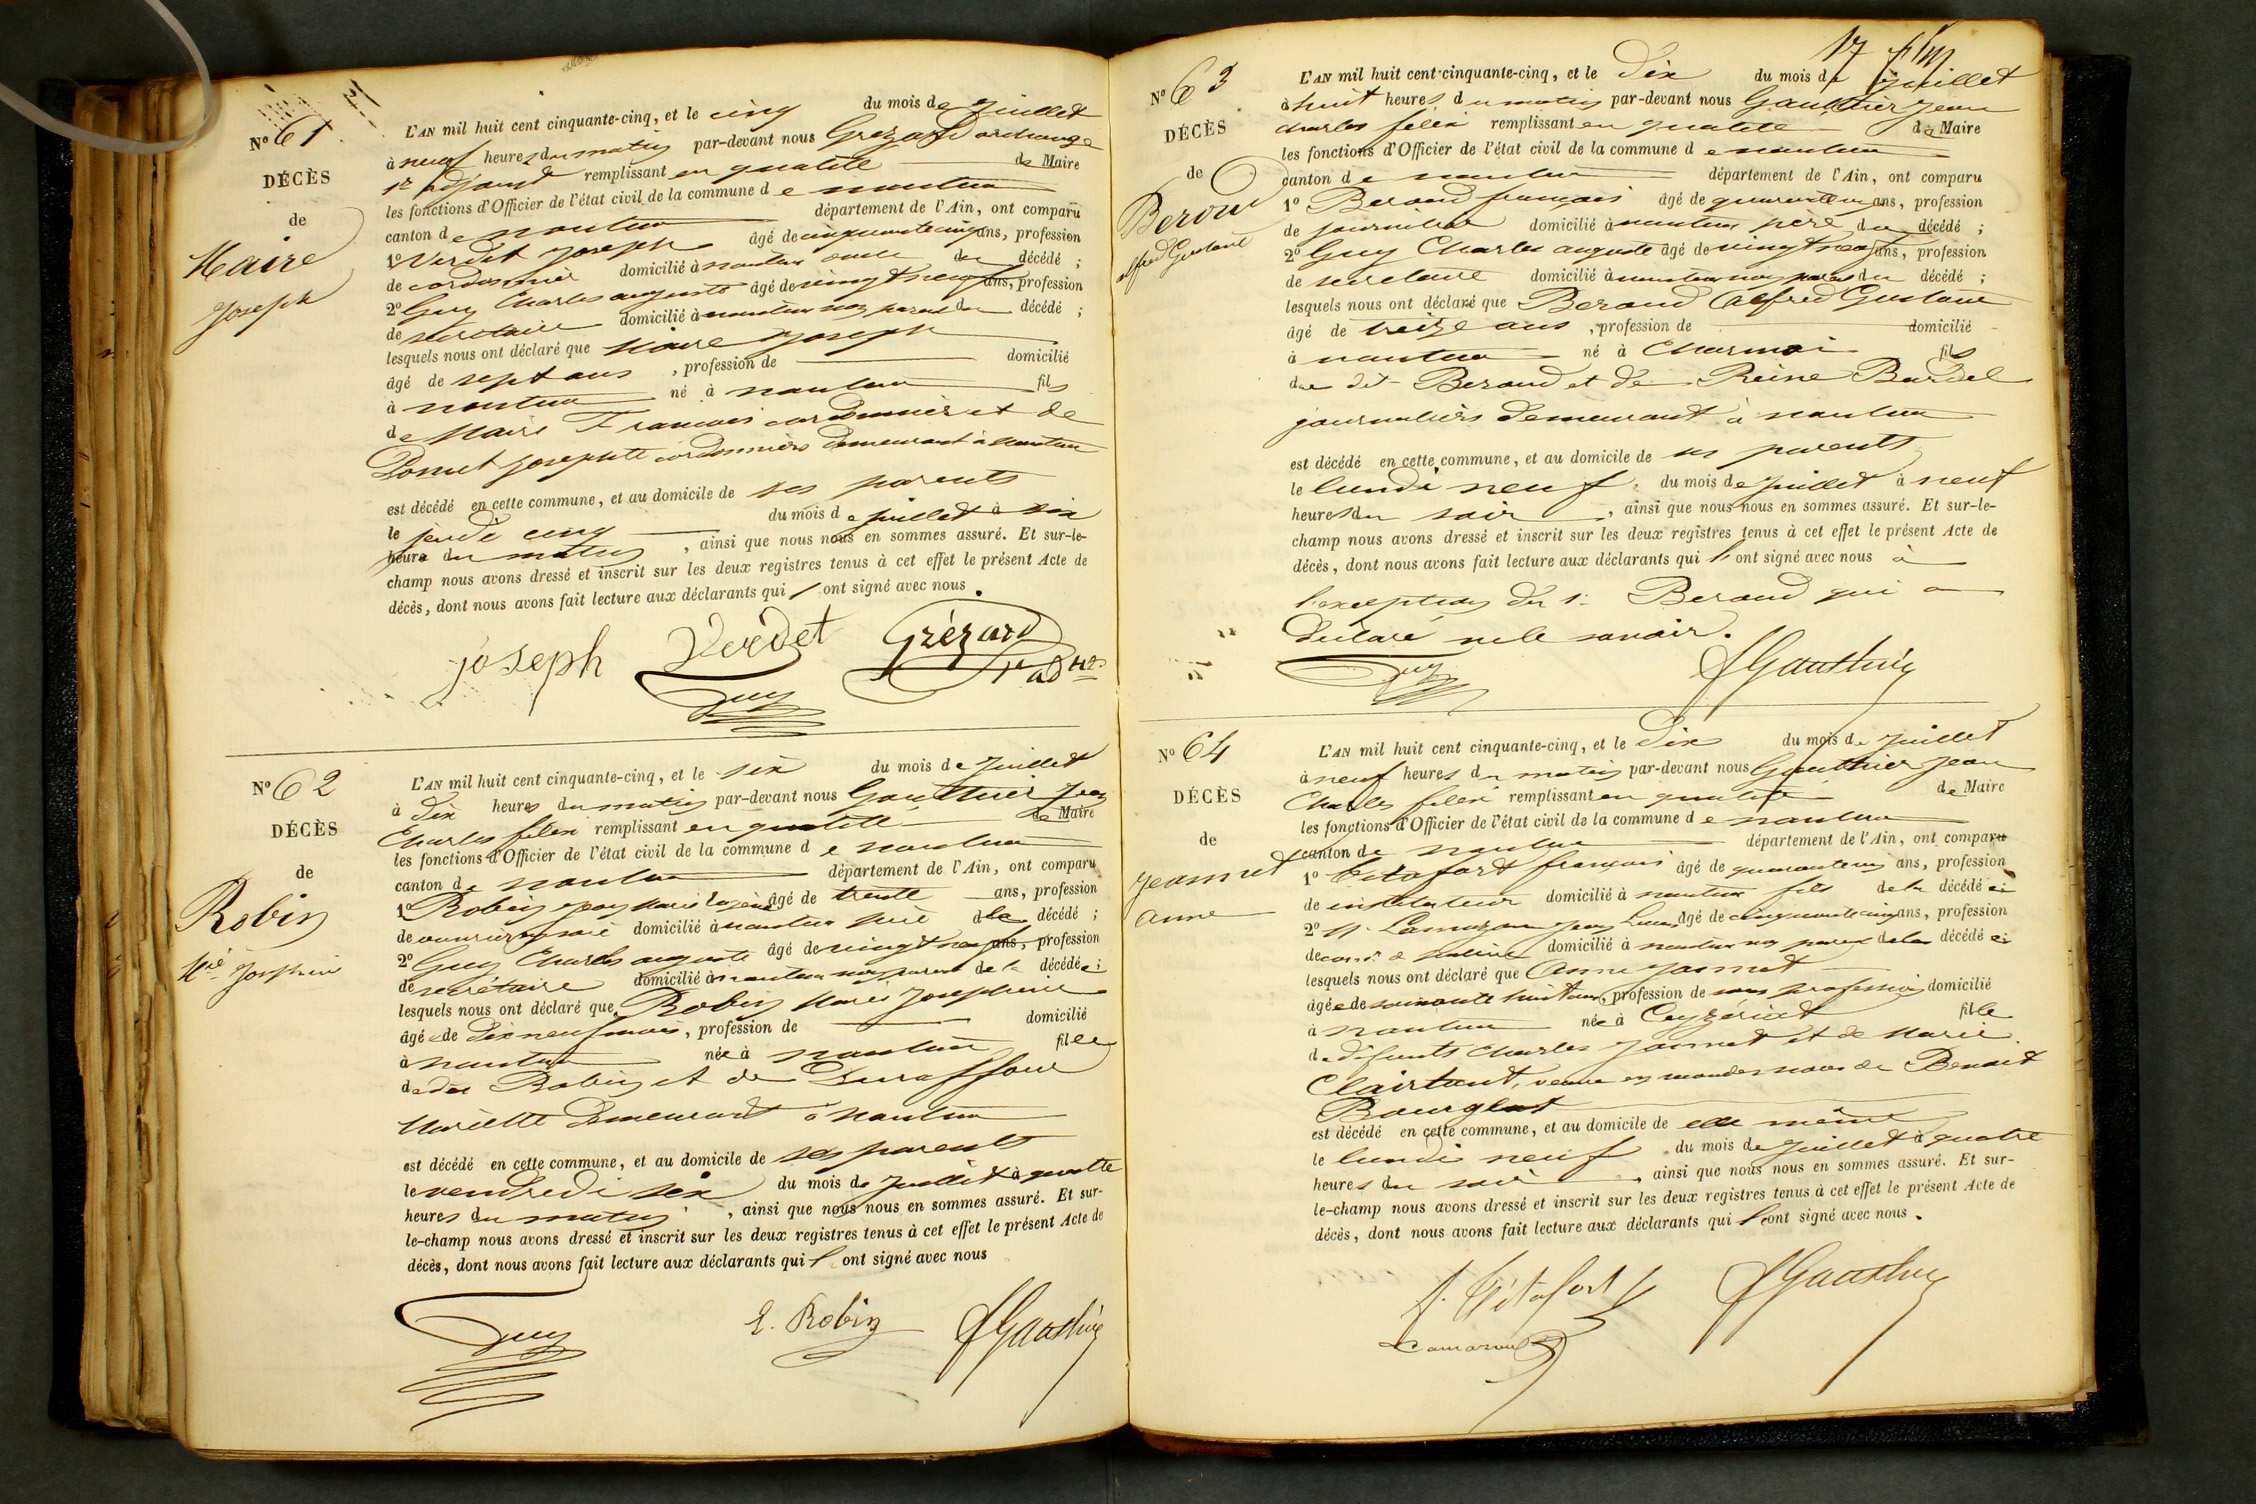 No 61
DÉCÈS
de
Maire
Joseph
L'AN mil huit cent cinquante-cinq, et le cinq du mois de Juillet
à neuf heures du matin par-devant nous Grezard archange
1er adjoint remplissant en qualité de Maire
les fonctions d'Officier de l'état civil de la commune de nantua
canton de nantua département de l'Ain, ont comparu
1o Verdet Joseph âgé de cinquante cinq ans, profession
de cordonnier domicilié à nantua oncle du décédé ;
2o Guy Charles auguste âgé de vingt neuf ans, profession
de secrétaire domicilié à nantua non parent du décédé ;
lesquels nous ont déclaré que Maire Joseph
âgé de sept ans , profession de domicilié
à nantua né à nantua fils
de Maire François cordonnier et de
Josephte cordonniers demeurant à nantua
est décédé en cette commune, et au domicile de ses parents
le jeudi cinq du mois de juillet à six
heure du matin , ainsi que nous nous en sommes assuré. Et sur-le-
champ nous avons dressé et inscrit sur les deux registres tenus à cet effet le présent Acte de
décès, dont nous avons fait lecture aux déclarants qui l'ont signé avec nous.
joseph Verdet Grézard
1er adt
Guy
No 62
DÉCÈS
de
Robin
Mie Josephine
L'AN mil huit cent cinquante-cinq, et le six du mois de Juillet
à dix heures du matin par-devant nous Gauthier Jean
Charles félix remplissant en qualité de Maire
les fonctions d'Officier de l'état civil de la commune de nantua
canton de nantua département de l'Ain, ont comparu
1o Robin Jean Marie Eugène âgé de trente ans, profession
de ouvrier en soie domicilié à nantua père de la décédé ;
2o Guy Charles auguste âgé de vingt neuf ans, profession
de secrétaire domicilié à nantua non parent de la décédée ;
lesquels nous ont déclaré que Robin Marie Josephine
âgée de dix neuf mois, profession de domicilié
à nantua née à nantua fille
de dit Robin et de Duraffour
Mariette demeurant à nantua
est décédé en cette commune, et au domicile de ses parents
le vendredi six du mois de Juillet à quatre
heures du matin , ainsi que nous nous en sommes assuré. Et sur-
le-champ nous avons dressé et inscrit sur les deux registres tenus à cet effet le présent Acte de
décès, dont nous avons fait lecture aux déclarants qui l'ont signé avec nous
Guy E. Robin f Gauthier
17
No 63
DÉCÈS
de
Beroud
alfred Gustave
L'AN mil huit cent cinquante-cinq, et le dix du mois de Juillet
à huit heures du matin par-devant nous Gauthier Jean
charles félix remplissant en qualité de Maire
les fonctions d'Officier de l'état civil de la commune de nantua
canton de nantua département de l'Ain, ont comparu
1o Beroud françois âgé de ans, profession
de journalier domicilié à nantua père du décédé ;
2o Guy Charles auguste âgé de vingt neuf ans, profession
de secretaire domicilié à nantua non parent du décédé ;
lesquels nous ont déclaré que Beroud Alfred Gustave
âgé de treize ans , profession de domicilié
à nantua né à Charmoi fils
du dit Beroud et de Reine Bardel
journaliers demeurant à nantua
est décédé en cette commune, et au domicile de ses parents
le lundi neuf du mois de juillet à neuf
heures du soir , ainsi que nous nous en sommes assuré. Et sur-le-
champ nous avons dressé et inscrit sur les deux registres tenus à cet effet le présent Acte de
décès, dont nous avons fait lecture aux déclarants qui l'ont signé avec nous à
l'exception du 1er Beroud qui a
déclaré ne le savoir.
Guy f Gauthier
No 64
DÉCÈS
de
Jeannet
anne
L'AN mil huit cent cinquante-cinq, et le dix du mois de Juillet
à neuf heures du matin par-devant nous Gauthier Jean
Charles félix remplissant en qualité de Maire
les fonctions d'Officier de l'état civil de la commune de nantua
canton de nantua département de l'Ain, ont comparu
1o françois âgé de ans, profession
de instituteur domicilié à nantua fils de la décédé e;
2o âgé de cinquante cinq ans, profession
de domicilié à nantua non parent de la décédé e;
lesquels nous ont déclaré que Anne Jannet
âgée de soixante huit ans, profession de sans profession domicilié
à nantua née à Ceyzériat fille
de défunts Charles Jannet et de Marie
Clairtant, veuve en secondes noces de Benoit
est décédé en cette commune, et au domicile de elle même
le lundi neuf du mois de Juillet à quatre
heures du soir , ainsi que nous nous en sommes assuré. Et sur-
le-champ nous avons dressé et inscrit sur les deux registres tenus à cet effet le présent Acte de
décès, dont nous avons fait lecture aux déclarants qui l'ont signé avec nous.
f Gauthier